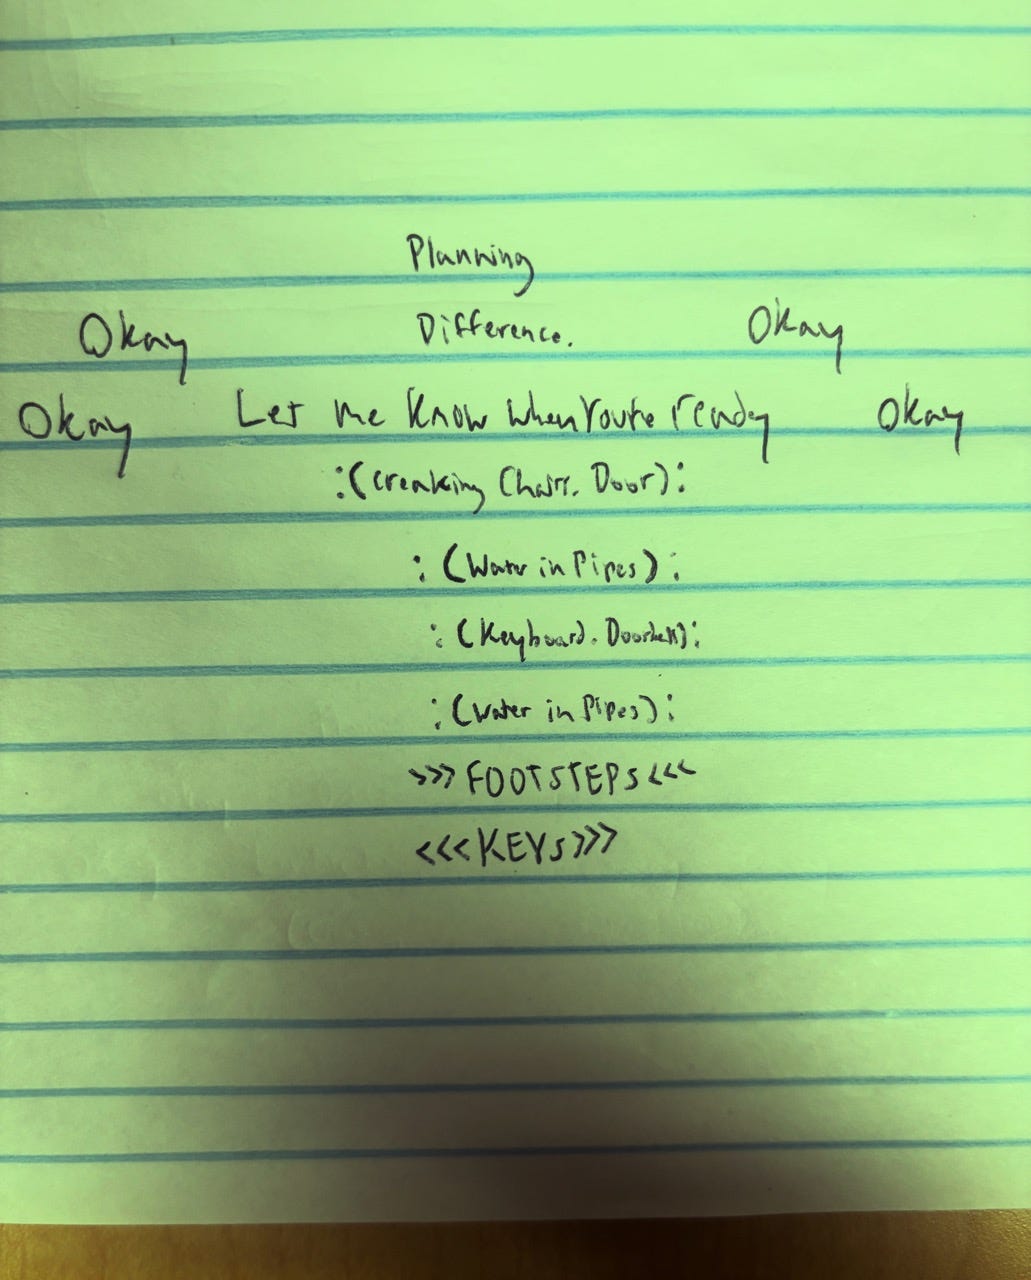 Planning
Okay Difference. Okay
Okay Let me Know when You're ready Okay
:(creaking Chair. Door):
:(Water in Pipes):
:(Keyboard. Doorbell):
:(Water in Pipes):
>>>FOOTSTEPS<<<
<<<KEYS>>>